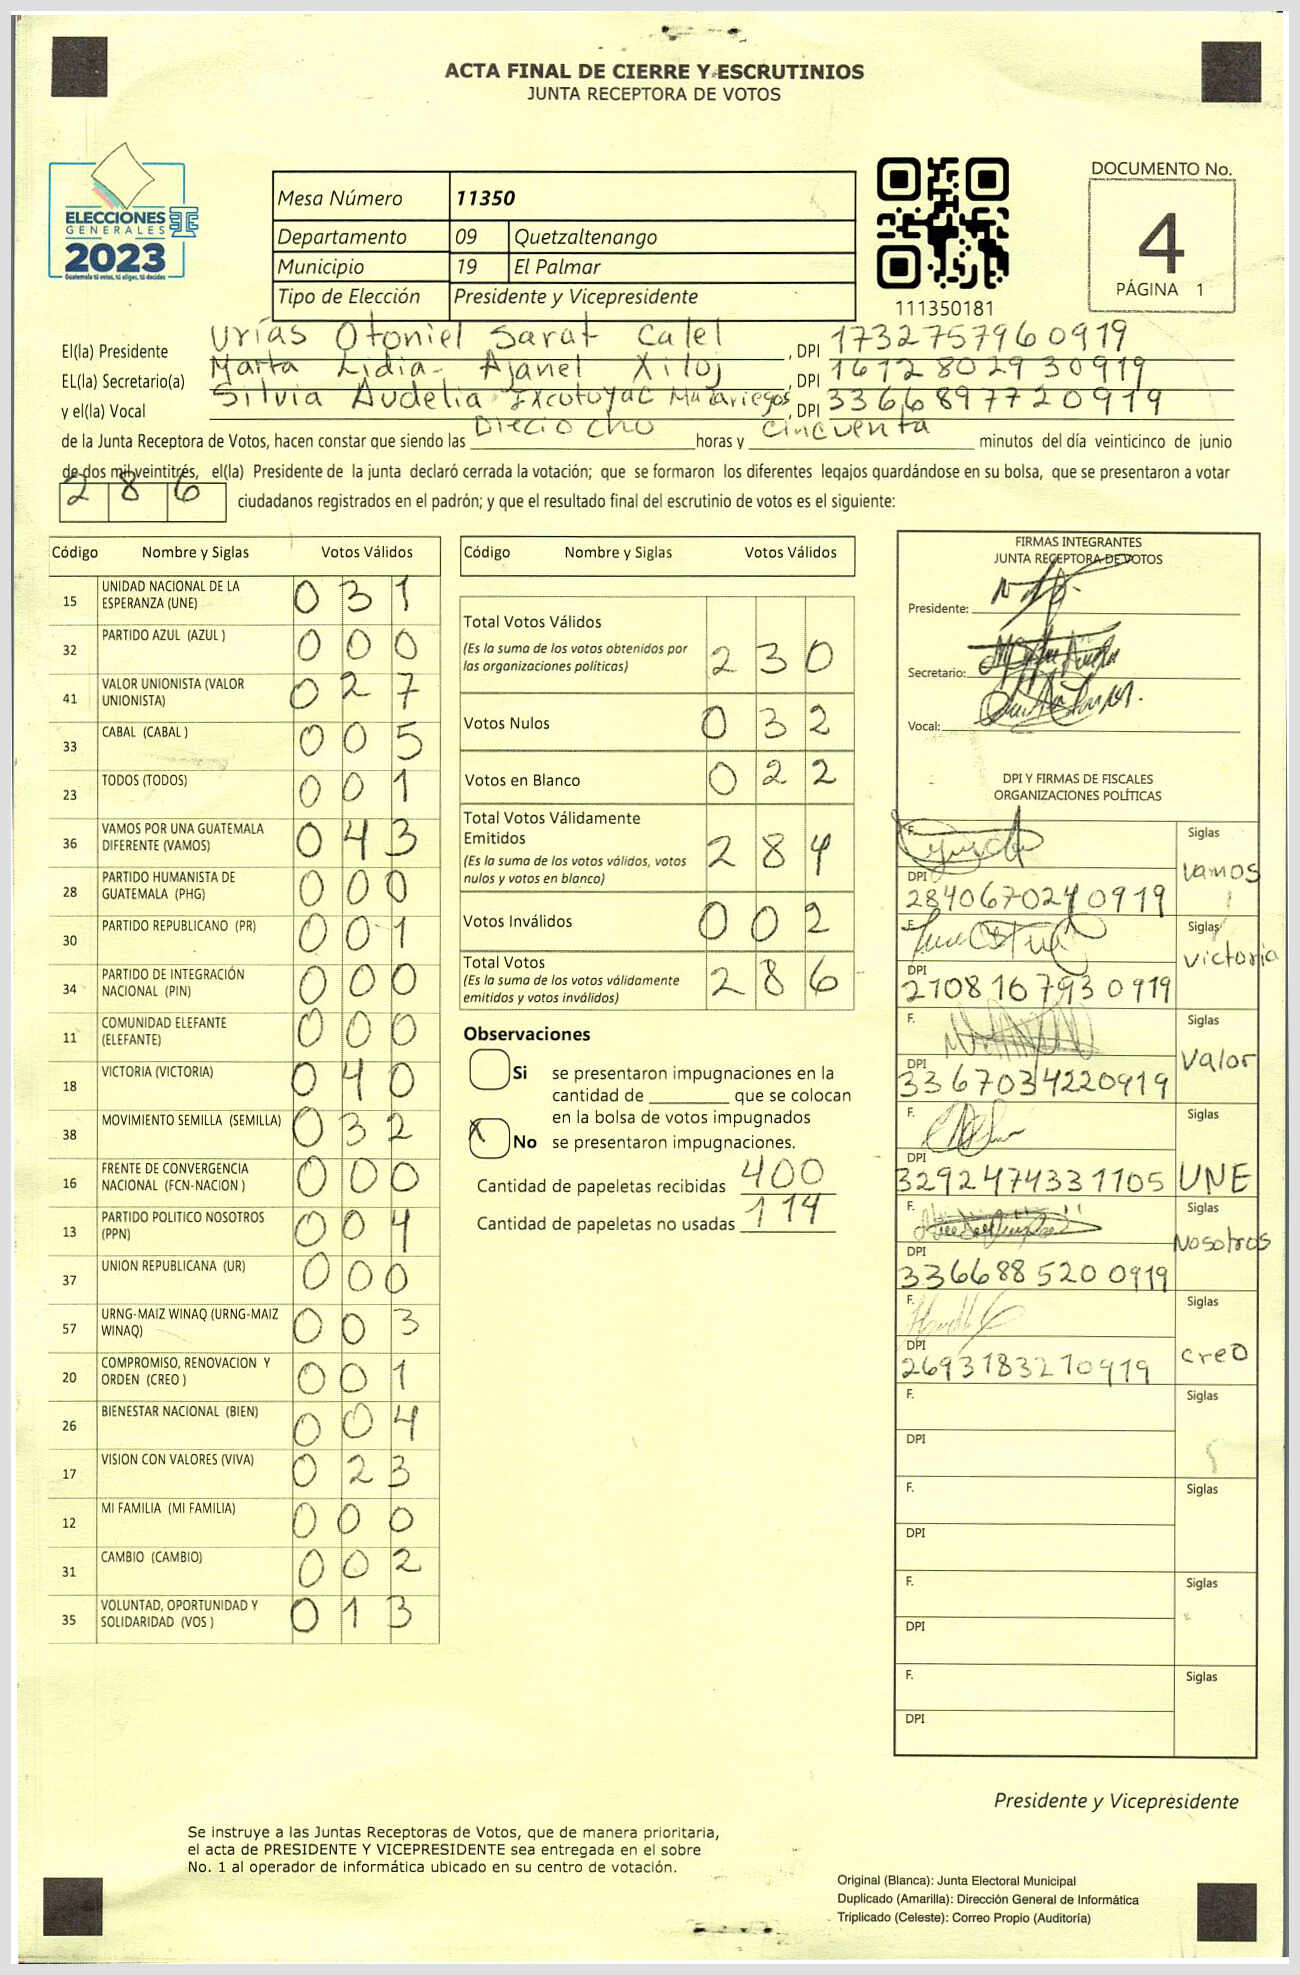 ACTA FINAL DE CIERRE Y ESCRUTINIOS
JUNTA RECEPTORA DE VOTOS
ELECCIONES
GENERALES
2023
Guatemala tú votas, tú eliges, tú decides
Mesa Número 11350
Departamento 09 Quetzaltenango
Municipio 19 El Palmar
Tipo de Elección Presidente y Vicepresidente
111350181
DOCUMENTO No.
4
PÁGINA 1
El(la) Presidente Urías Otoniel Sarat Calel, DPI 1732757960919
EL(la) Secretario(a) Marta Lidia Ajanel Xiloj, DPI 1612802930919
y el(la) Vocal Silvia Audelia Ixcotoyac Mazariegos, DPI 3366897720919
de la Junta Receptora de Votos, hacen constar que siendo las Dieciocho horas y cincuenta minutos del día veinticinco de junio
de dos mil veintitrés, el(la) Presidente de la junta declaró cerrada la votación; que se formaron los diferentes legajos guardándose en su bolsa, que se presentaron a votar
286 ciudadanos registrados en el padrón; y que el resultado final del escrutinio de votos es el siguiente:
Código Nombre y Siglas Votos Válidos
15 UNIDAD NACIONAL DE LA ESPERANZA (UNE) 031
32 PARTIDO AZUL (AZUL ) 000
41 VALOR UNIONISTA (VALOR UNIONISTA) 027
33 CABAL (CABAL ) 005
23 TODOS (TODOS) 001
36 VAMOS POR UNA GUATEMALA DIFERENTE (VAMOS) 043
28 PARTIDO HUMANISTA DE GUATEMALA (PHG) 000
30 PARTIDO REPUBLICANO (PR) 001
34 PARTIDO DE INTEGRACIÓN NACIONAL (PIN) 000
11 COMUNIDAD ELEFANTE (ELEFANTE) 000
18 VICTORIA (VICTORIA) 040
38 MOVIMIENTO SEMILLA (SEMILLA) 032
16 FRENTE DE CONVERGENCIA NACIONAL (FCN-NACION ) 000
13 PARTIDO POLITICO NOSOTROS (PPN) 004
37 UNION REPUBLICANA (UR) 000
57 URNG-MAIZ WINAQ (URNG-MAIZ WINAQ) 003
20 COMPROMISO, RENOVACION Y ORDEN (CREO ) 001
26 BIENESTAR NACIONAL (BIEN) 004
17 VISION CON VALORES (VIVA) 023
12 MI FAMILIA (MI FAMILIA) 000
31 CAMBIO (CAMBIO) 002
35 VOLUNTAD, OPORTUNIDAD Y SOLIDARIDAD (VOS ) 013
Código Nombre y Siglas Votos Válidos
Total Votos Válidos
(Es la suma de los votos obtenidos por
las organizaciones políticas) 230
Votos Nulos 032
Votos en Blanco 022
Total Votos Válidamente
Emitidos
(Es la suma de los votos válidos, votos
nulos y votos en blanco) 284
Votos Inválidos 002
Total Votos
(Es la suma de los votos válidamente
emitidos y votos inválidos) 286
Observaciones
Si se presentaron impugnaciones en la
cantidad de ________ que se colocan
en la bolsa de votos impugnados
X No se presentaron impugnaciones.
Cantidad de papeletas recibidas 400
Cantidad de papeletas no usadas 114
FIRMAS INTEGRANTES
JUNTA RECEPTORA DE VOTOS
Presidente:
Secretario:
Vocal:
DPI Y FIRMAS DE FISCALES
ORGANIZACIONES POLÍTICAS
F. Siglas
DPI Vamos
2840670240919
F. Siglas
DPI victoria
2108167930919
F. Siglas
DPI Valor
3367034220919
F. Siglas
DPI
3292474331105 UNE
F. Siglas
DPI Nosotros
3366885200919
F. Siglas
DPI creo
2693183210919
F. Siglas
DPI
F. Siglas
DPI
F. Siglas
DPI
F. Siglas
DPI
Presidente y Vicepresidente
Se instruye a las Juntas Receptoras de Votos, que de manera prioritaria,
el acta de PRESIDENTE Y VICEPRESIDENTE sea entregada en el sobre
No. 1 al operador de informática ubicado en su centro de votación.
Original (Blanca): Junta Electoral Municipal
Duplicado (Amarilla): Dirección General de Informática
Triplicado (Celeste): Correo Propio (Auditoría)